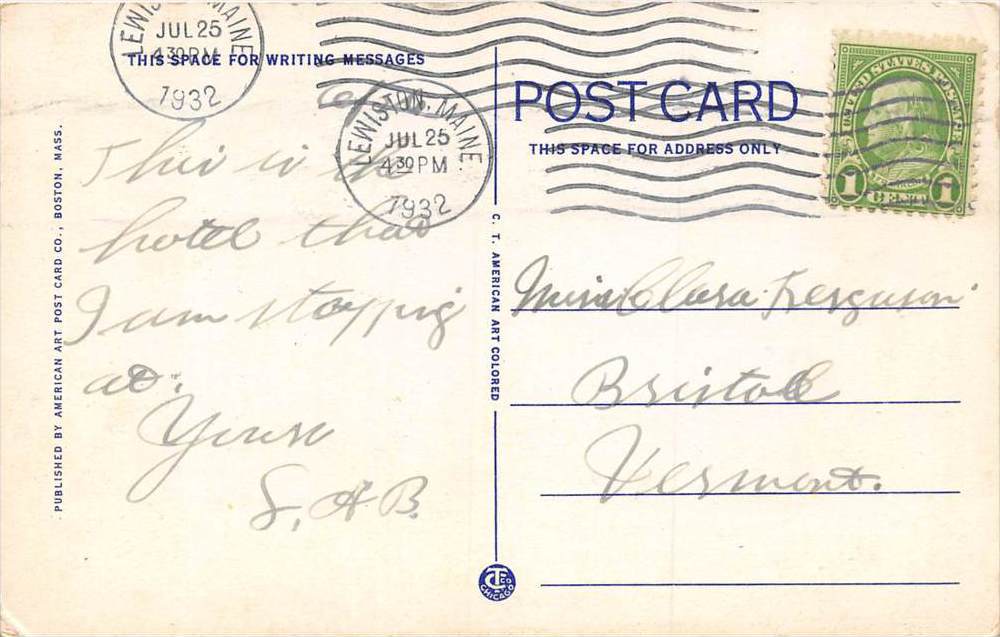 LEWISTON, MAINE
JUL 25
4 30 PM
1932
THIS SPACE FOR WRITING MESSAGES
LEWISTON, MAINE.
JUL 25
4 30 PM
1932
This is the
hotel that
I am stopping
at.
Yours
S. A B.
PUBLISHED BY AMERICAN ART POST CARD CO., BOSTON, MASS.
C. T. AMERICAN ART COLORED
C T CO
CHICAGO
POST CARD
THIS SPACE FOR ADDRESS ONLY
UNITED STATES POSTAGE
1 CENT 1
Miss Clara Ferguson
Bristol
Vermont.